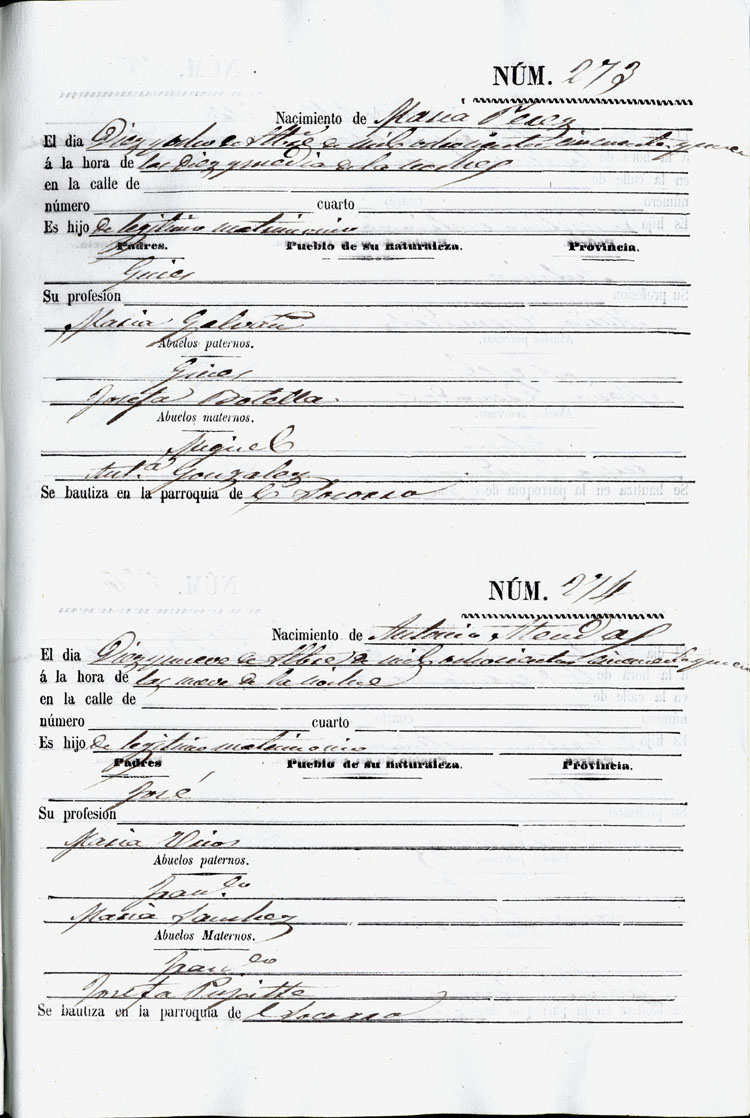 NÚM. 273
Nacimiento de Maria Perez
El dia Diez y ocho de Stbre de mil ochocientos cincuenta y nueve
á la hora de las diez y media de la noche
en la calle de
número cuarto
Es hijo de legitimo matrimonio
Padres. Pueblo de su naturaleza. Provincia.
Gines
Su profesión
Maria Galvañ
Abuelos paternos.
Gines
Josefa Botella
Abuelos maternos.
Miguel
Ant.ª Gonzalez
Se bautiza en la parroquia de el Socorro
NÚM. 274
Nacimiento de Antonio
El dia Diez y nueve de Stbre de mil ochocientos cincuenta y nueve
á la hora de las nueve de la noche
en la calle de
número cuarto
Es hijo de legitimo matrimonio
Padres Pueblo de su naturaleza. Provincia.
José
Su profesión
Maria Urios
Abuelos paternos.
Fran.co
Maria Sanchez
Abuelos Maternos.
Fran.co
Josefa
Se bautiza en la parroquia de el Socorro